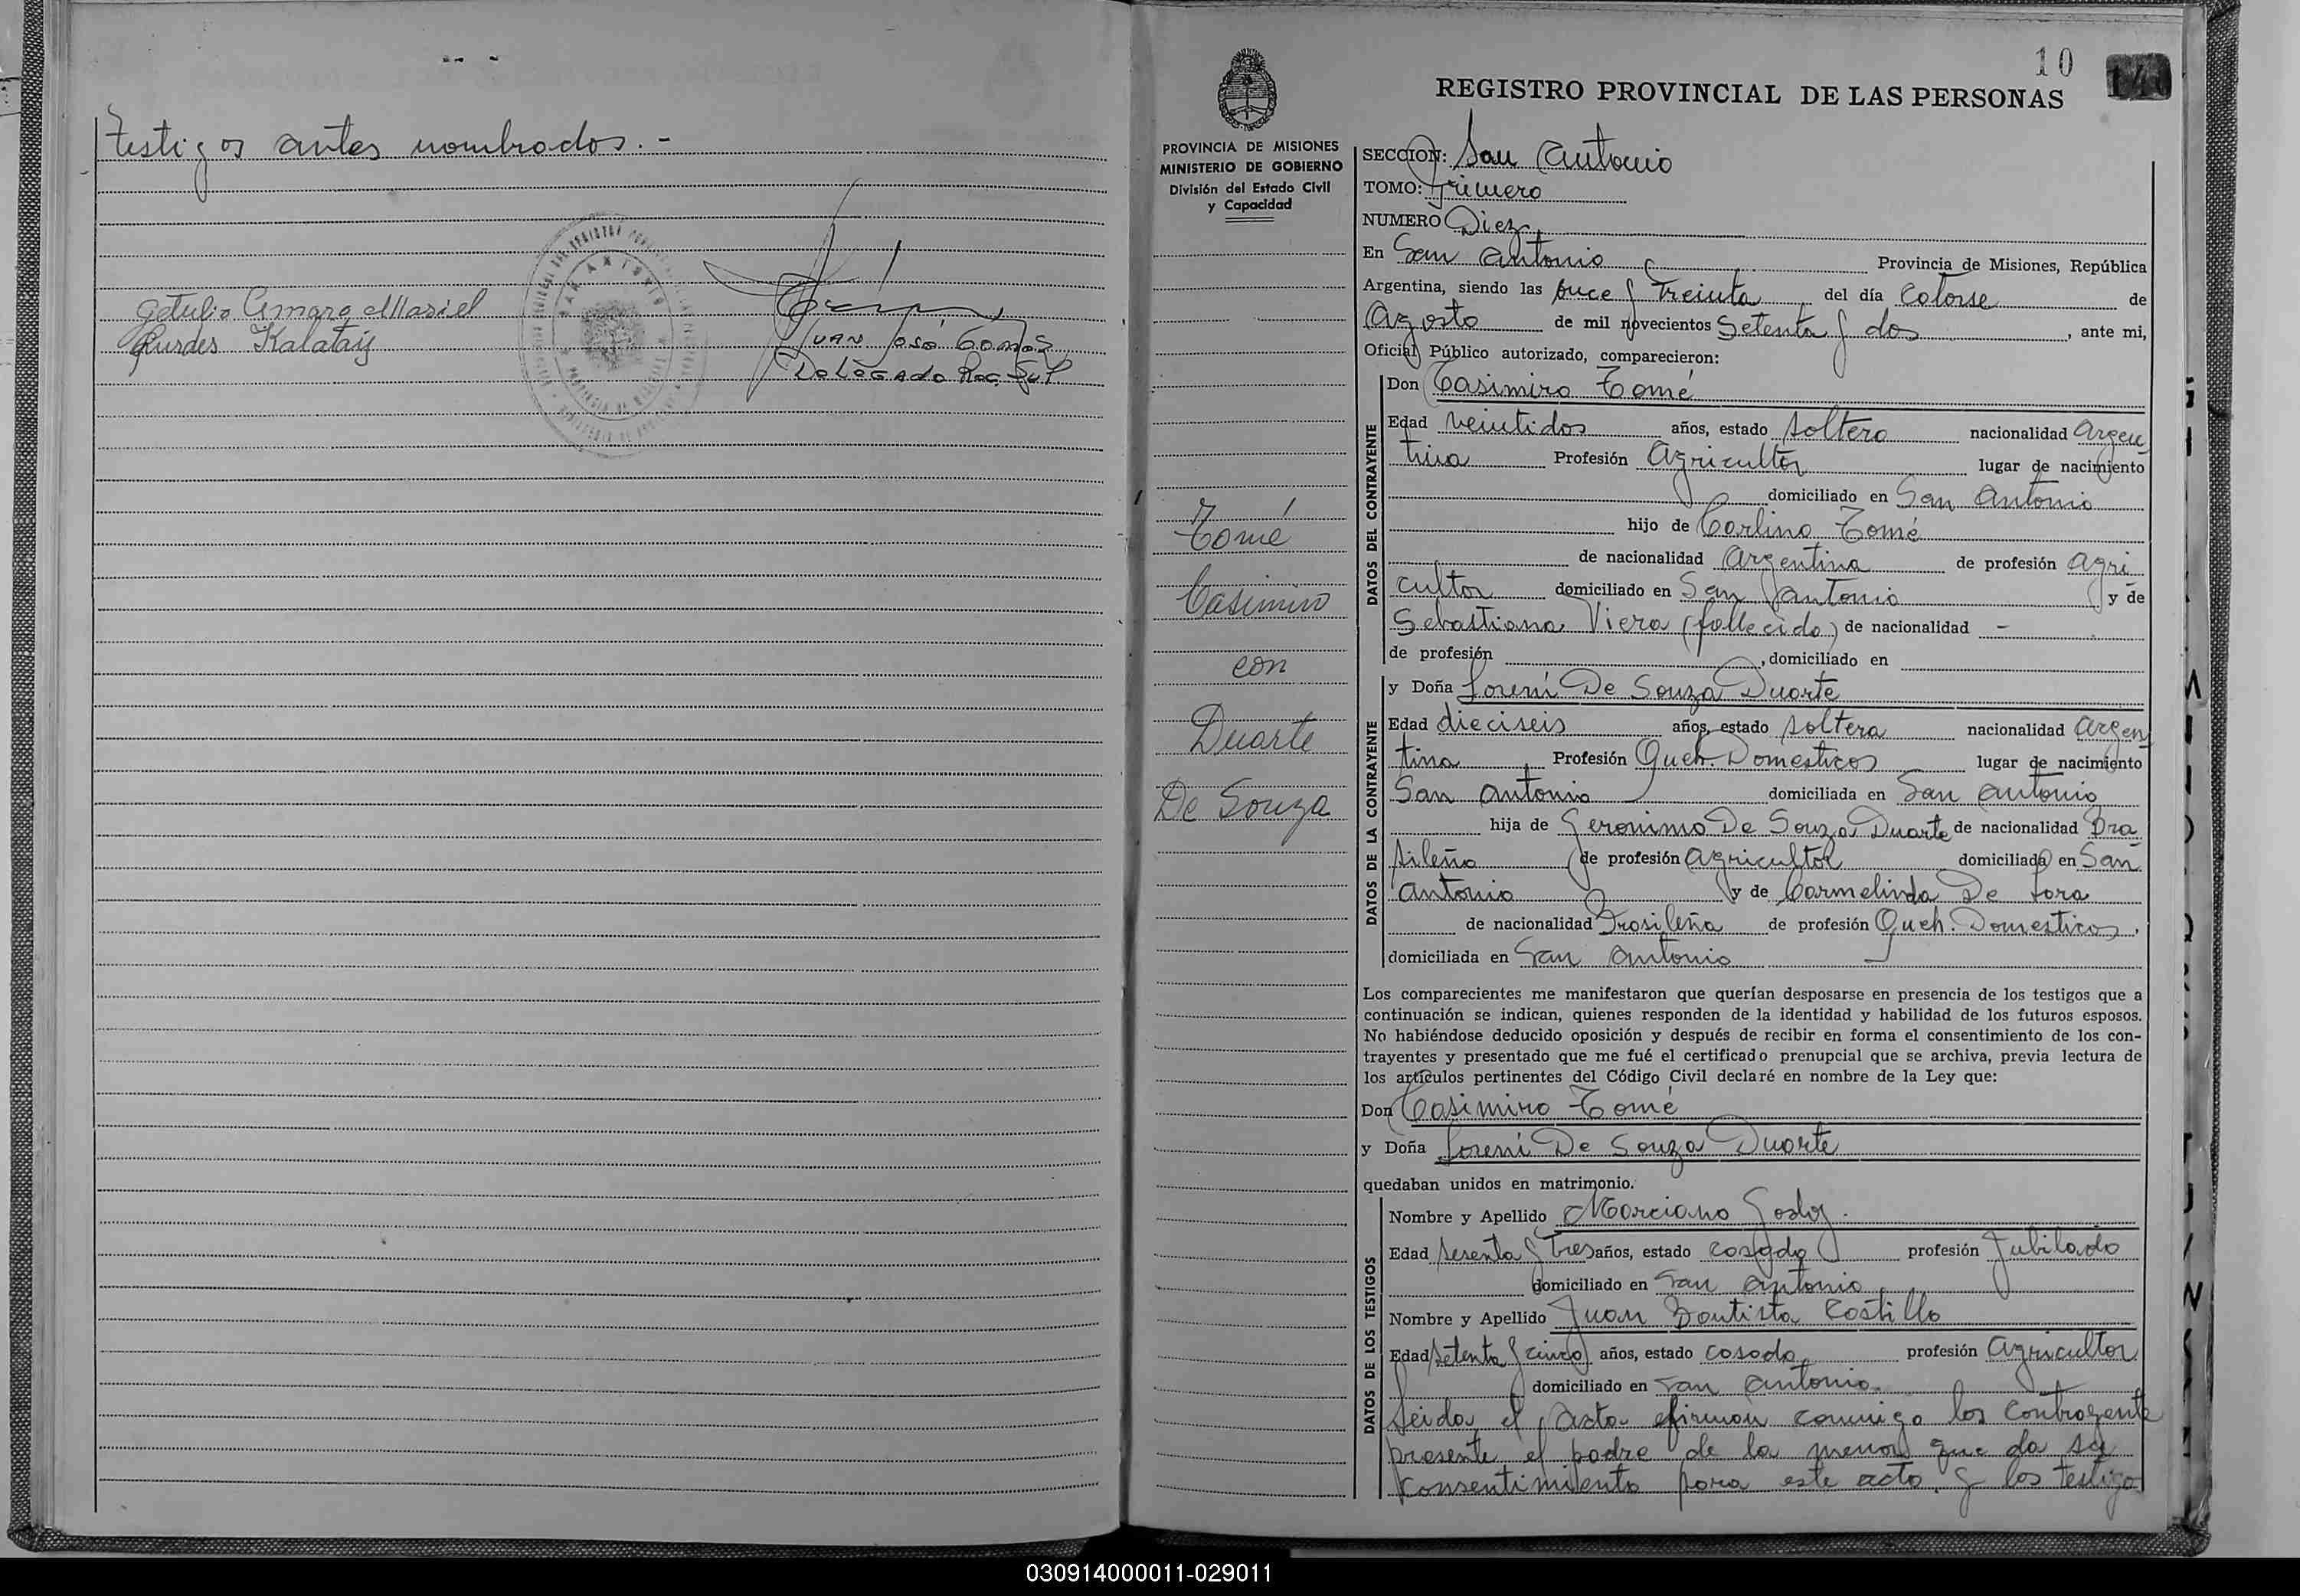 testigos antes nombrados. -
Getulio Amaro Maciel
Lurdes Kalatay
Juan José Gomez
Delegado Reg.
10
REGISTRO PROVINCIAL DE LAS PERSONAS
PROVINCIA DE MISIONES
MINISTERIO DE GOBIERNO
División del Estado Civil
y Capacidad
Tomé
Casimiro
con
Duarte
De Souza
SECCION: San Antonio
TOMO: Primero
NUMERO Diez
En San Antonio Provincia de Misiones, República
Argentina, siendo las once y treinta del día catorse de
Agosto de mil novecientos Setenta y dos, ante mi,
Oficial Público autorizado, comparecieron:
DATOS DEL CONTRAYENTE
Don Casimiro Tomé
Edad veintidos años, estado soltero nacionalidad Argen
tina Profesión Agricultor lugar de nacimiento
domiciliado en San Antonio
hijo de Carlino Tomé
de nacionalidad Argentina de profesión Agri
cultor domiciliado en San Antonio y de
Sebastiana Viera (fallecida) de nacionalidad -
de profesión , domiciliado en
DATOS DE LA CONTRAYENTE
y Doña Loreni De Souza Duarte
Edad dieciseis años, estado soltera nacionalidad Argen
tina Profesión Queh. Domesticos lugar de nacimiento
San Antonio domiciliada en San Antonio
hija de Geronimo De Souza Duarte de nacionalidad Bra
sileña de profesión Agricultor domiciliada en San
Antonio y de Carmelinda De Lara
de nacionalidad Brasileña de profesión Queh. Domesticos,
domiciliada en San Antonio
Los comparecientes me manifestaron que querían desposarse en presencia de los testigos que a
continuación se indican, quienes responden de la identidad y habilidad de los futuros esposos.
No habiéndose deducido oposición y después de recibir en forma el consentimiento de los con-
trayentes y presentado que me fué el certificado prenupcial que se archiva, previa lectura de
los artículos pertinentes del Código Civil declaré en nombre de la Ley que:
Don Casimiro Tomé
y Doña Loreni De Souza Duarte
quedaban unidos en matrimonio.
DATOS DE LOS TESTIGOS
Nombre y Apellido Marciano Godoy.
Edad sesenta y tres años, estado casado profesión Jubilado
domiciliado en San Antonio
Nombre y Apellido Juan Bautista Costillo
Edad setenta y cinco años, estado casado profesión Agricultor
domiciliado en San Antonio.
Leida el Acta firman conmigo los Contrayente
presente el padre de la menor que da su
consentimiento para este acto y los testigo
030914000011-029011